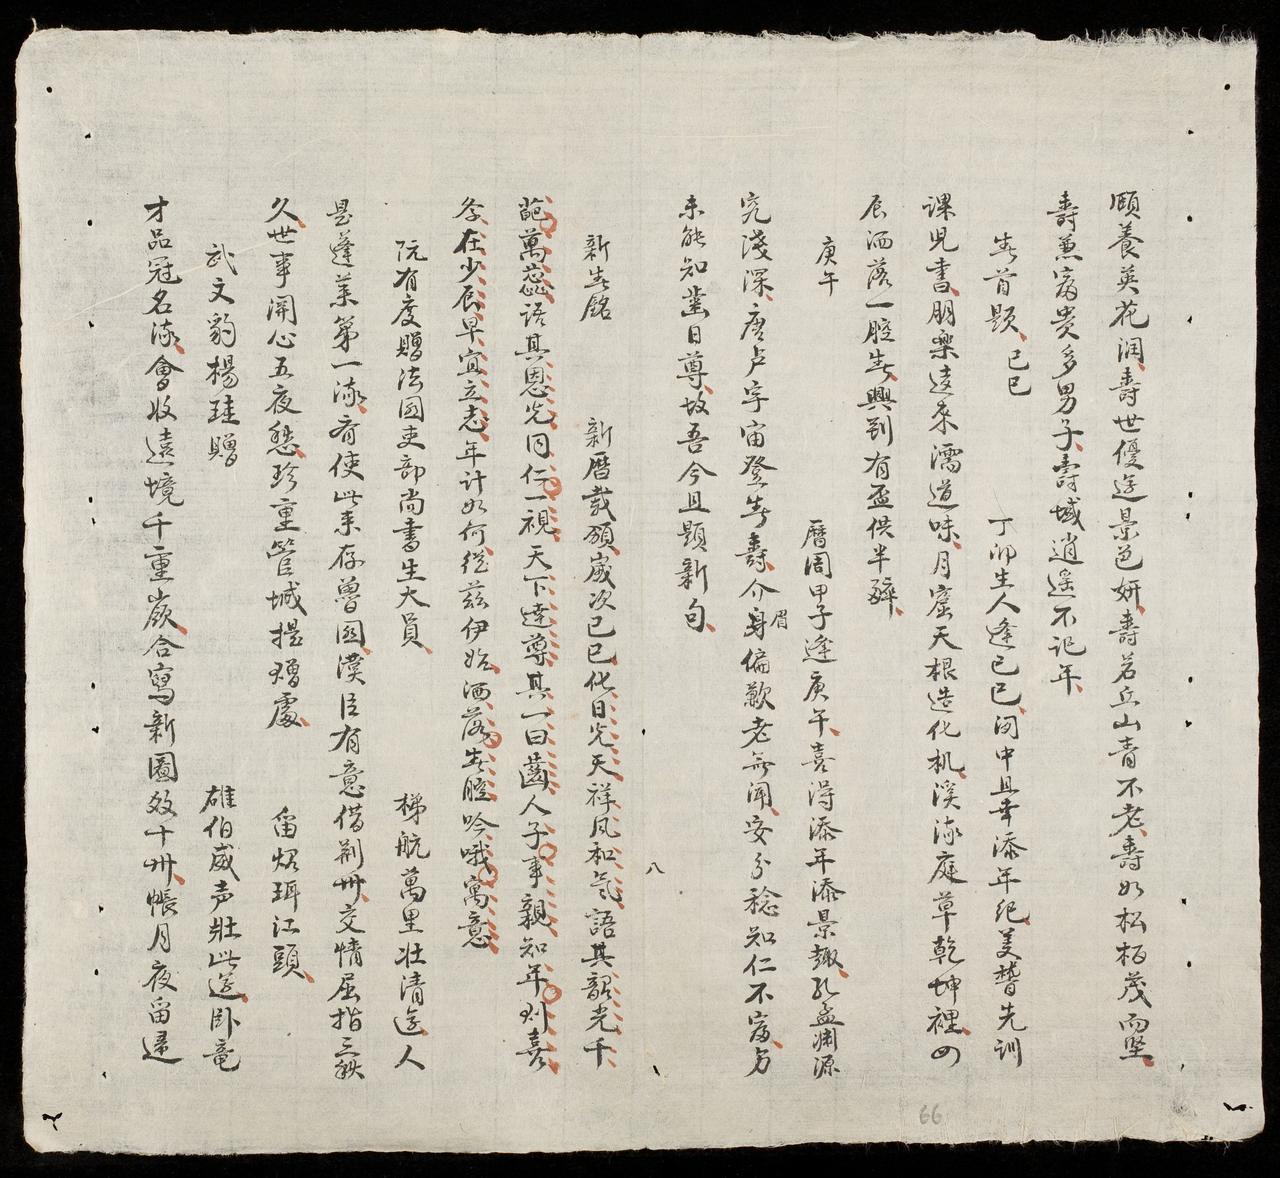 頤養英花潤壽世優遊景色妍壽若丘山青不老壽如松栢茂而堅
壽兼富贵多男子壽域逍遥不記年
春首題 己巳 丁卯生人逢己巳闵中且幸添年纪美替先訓
課児書朋樂遠来濡道味月窟天根造化机溪流庭草乾坤裡四
辰洒落一腔春興到有盃供半醉
庚午 曆周甲子逢庚午喜得添年添景趣孔孟渊源
究淺深唐卢宇宙登春壽介身眉偏歎老無闻安分稔知仁不富方
未能知歯日尊故吾今且題新句
八
新春銘 新曆载頒嵗次己巳化日光天祥風和気語其韶光千
葩萬蕊語其恩光同仁一視天下達尊其一曰齒人子事親知年则喜
冬在少辰早宜立志年计如何從兹伊始洒落春腔吟哦寓意
阮有度贈法國吏部尚書生大員 梯航萬里壮清遊人
是蓬莱第一流有使此来存魯國漢臣有意借荆州交情屈指三秋
久世事開心五夜愁珍重管城提贈處 留炤珥江頭
武文豹楊珪贈 雄伯威声壯此遊卧竜
才品冠名流會收遠境千重嶽合寫新圖效十州帳月夜留連
66